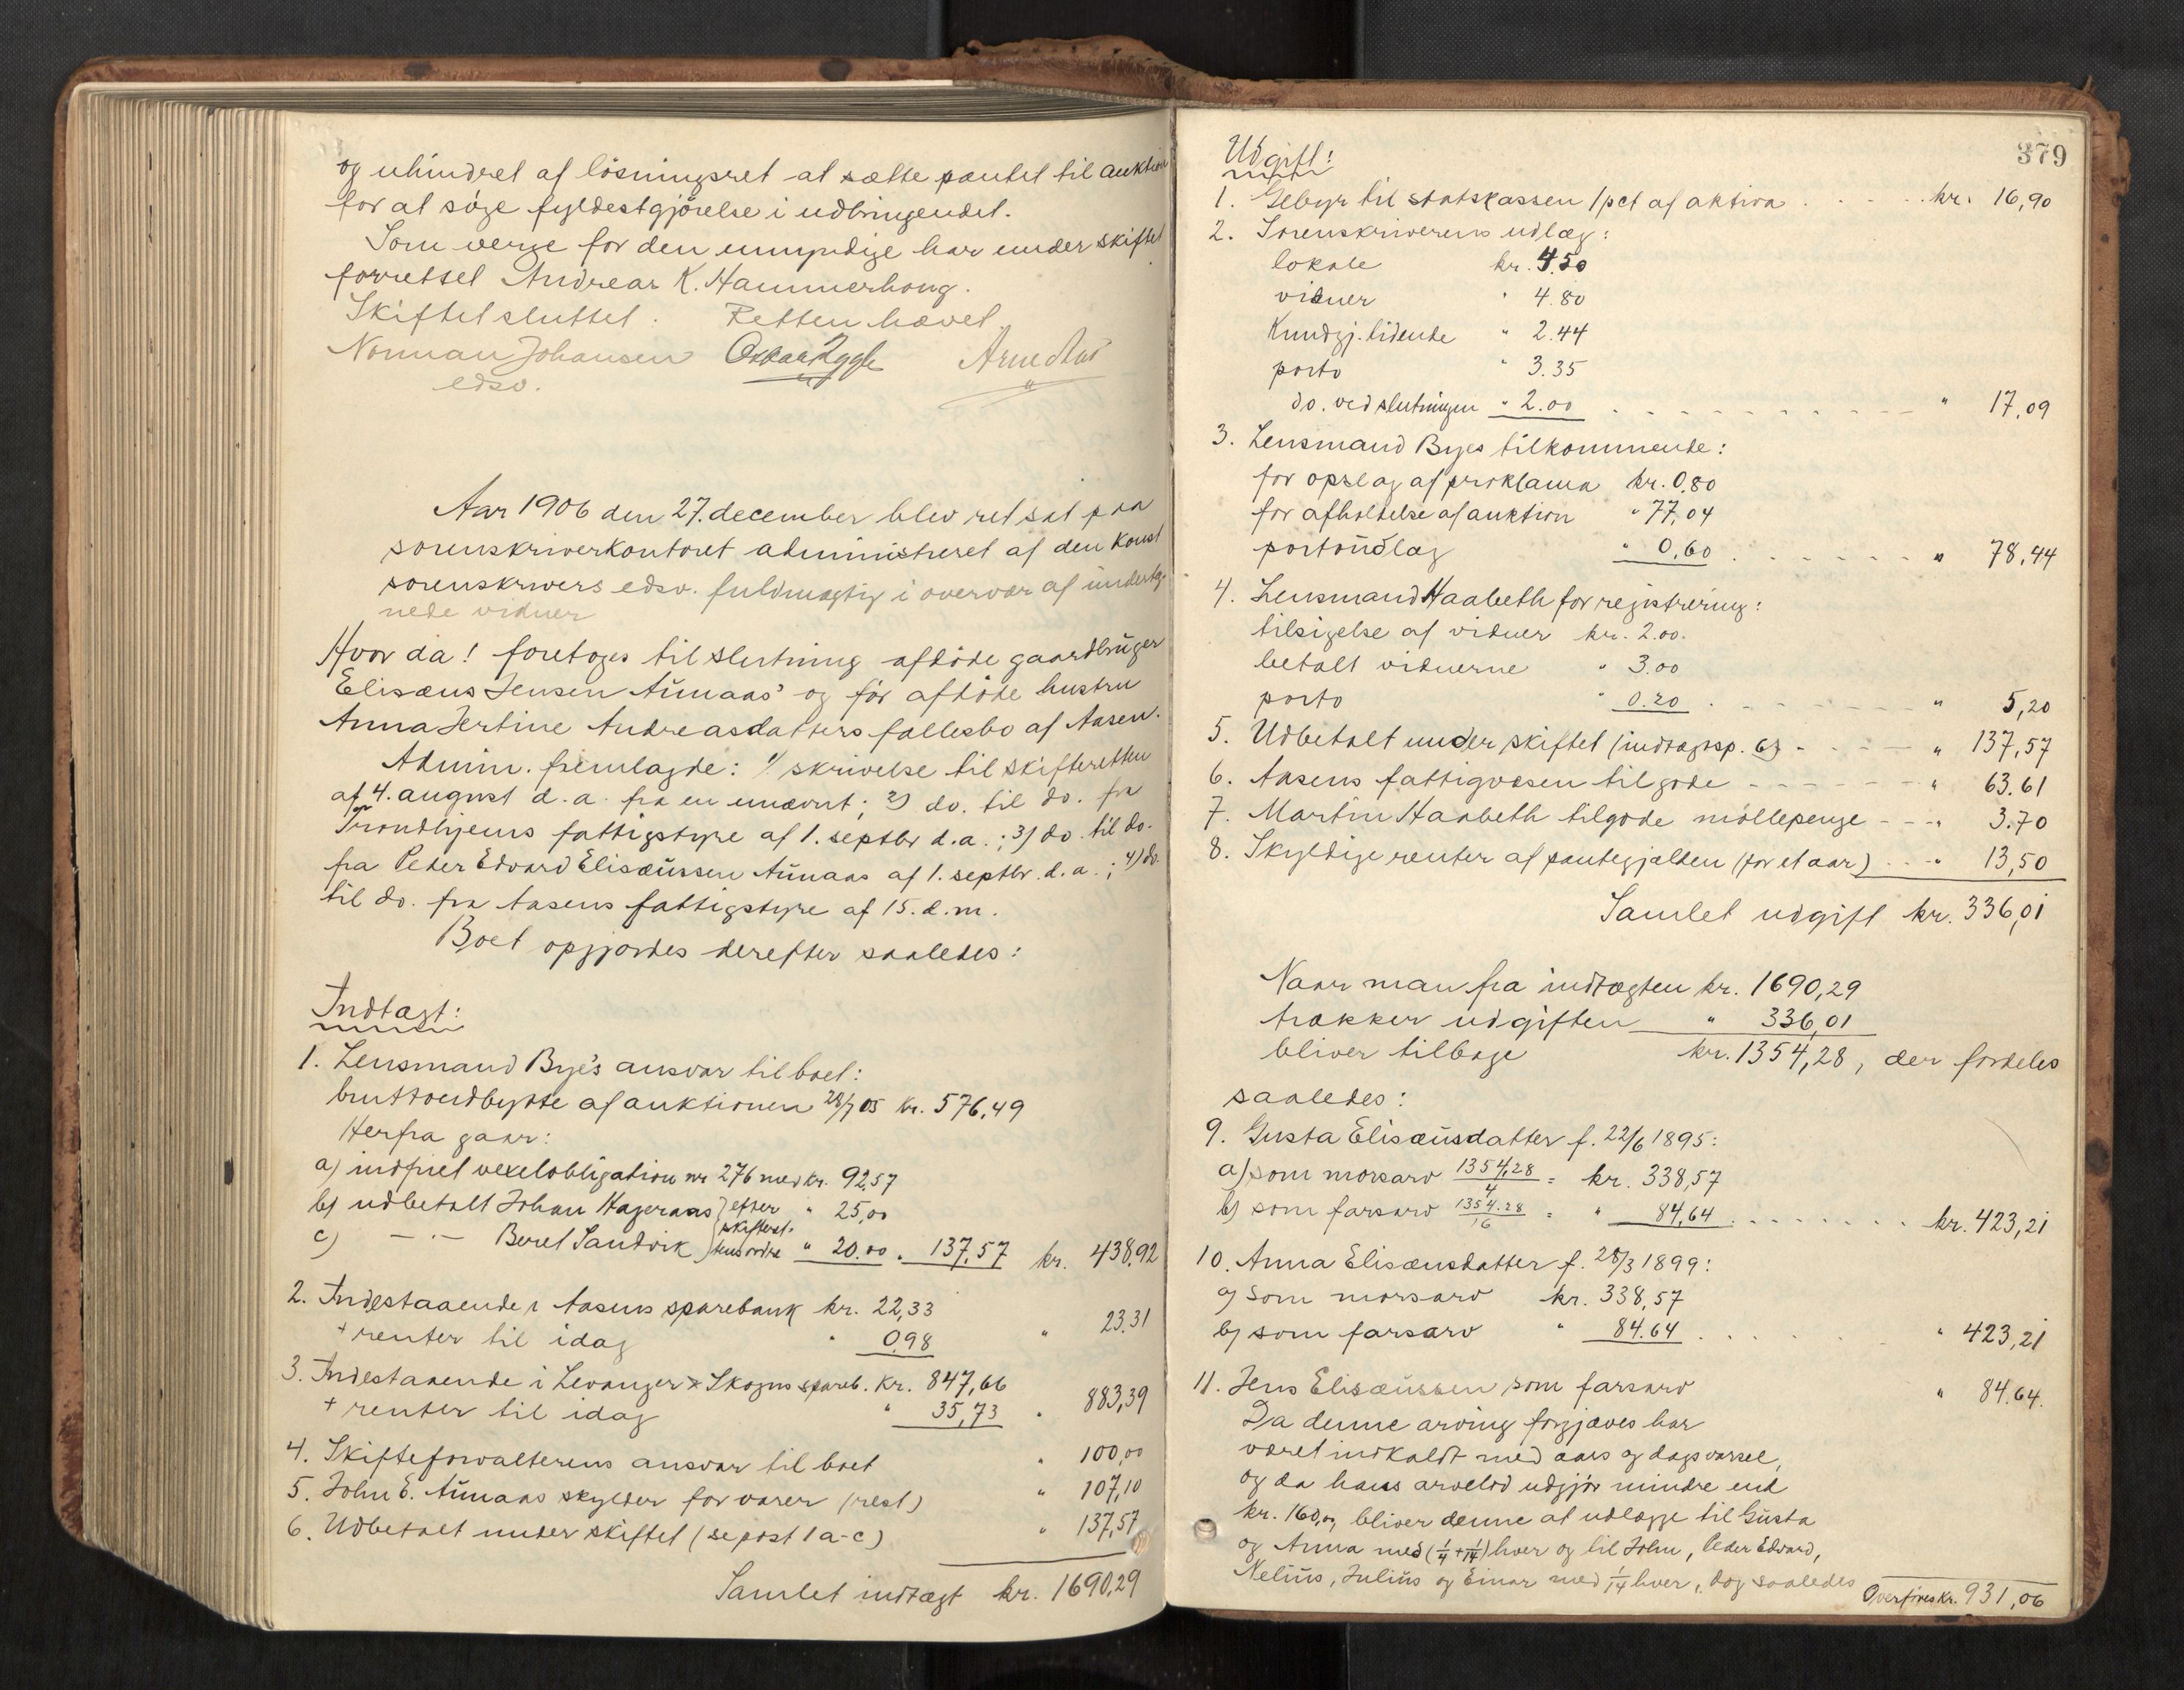 og uhindret af lösningsret at sætte pantet til auktion
for at söge fyldestgjörelse i udbringendet.
Som verge for den umyndige har under skiftet
forrettet Andreas K. Hammerhoug.
Skiftet sluttet. Retten hævet.
Norman Johansen
edsv.
Aar 1906 den 27. december blev ret sat paa
sorenskriverkontoret administreret af den konst
sorenskrivers edsv. fuldmægtig i overvær af undertg-
nede vidner
Hvor da! foretoges til slutning afdöde gaardbruger
Elisæus Jensen Aünaas' og för afdöde hustru
Anna Jertine Andreasdatters fællesbo af Aasen.
Admin. fremlagde: 1) skrivelse til skifteretten
af 4. august d.a. fra en unævnt; 2) do. til do. fra
Trondhjems fattigstyre af 1. septbr d.a.; 3) do. til do.
fra Peder Edvard Elisæüssen Aünaas af 1. septbr. d.a.; 4) do.
til do. fra Aasens fattigstyre af 15. d.m.
Boet opgjordes derefter saaledes:
Indtægt:
1. Lensmand Bye's ansvar til boet:
bruttoudbytte af auktionen 28/7 05 kr. 576,49
Herfra gaar:
a) indfriet vexelobligation nr 276 med kr. 92,57
b) udbetalt Johan Hageraas } efter " 25,00
c) -"- Beret Sandvik } skifteret- tens ordre " 20.00 " 137,57 kr. 438,92
2. Indestaaende i Aasens sparebank kr. 22,33
+ renter til idag " 0,98 " 23.31
3. Indestaaende i Levanger & Skogns spareb. kr. 847,66
+ renter til idag " 35,73 " 883,39
4. Skifteforvalterens ansvar til boet " 100,00
5. John E. Aünaas skylder for varer (rest) " 107,10
6. Udbetalt under skiftet (se post 1 a-c) " 137,57
Samlet indtægt kr. 1690,29
379
Udgift:
1. Gebyr til statskassen 1 pct af aktiva kr. 16,90
2. Sorenskriverens udlæg:
lokale kr. 4.50
vidner " 4.80
Kundgj. tidende " 2.44
porto " 3.35
do. ved slutningen " 2.00 " 17,09
3. Lensmand Byes tilkommende:
for opslag af proklama kr. 0,80
for afholdelse af auktion " 77,04
portoüdlæg " 0,60 " 78,44
4. Lensmand Haabeth for registrering:
tilsigelse af vidner kr. 2.00.
betalt vidnerne " 3.00
porto " 0.20 " 5,20
5. Udbetalt under skiftet (indtægtsp. 6) " 137,57
6. Aasens fattigvæsen tilgode " 63.61
7. Martin Haabeth tilgode möllepenge " 3.70
8. Skyldige renter af pantegjælden (for et aar) " 13,50
Samlet udgift kr. 336,01
Naar man fra indtægten kr. 1690,29
trækker udgiften " 336,01
bliver tilbage kr. 1354,28, der fordeles
saaledes:
9. Gusta Elisæüsdatter f. 22/6 1895:
a) som morsarv 1354,28/4 = kr. 338,57
b) som farsarv 1354.28/16 = " 84,64 kr. 423,21
10. Anna Elisæusdatter f. 28/3 1899:
a) som morsarv kr. 338,57
b) som farsarv " 84.64 " 423,21
11. Jens Elisæüssen som farsarv " 84.64.
Da denne arving forgjæves har
været indkaldt med aars og dags varsel,
og da hans arvelod udgjör mindre end
kr. 160,00, bliver denne at udlægge til Güsta
og Anna med (1/4 + 1/14) hver og til John, Peder Edvard,
Nelius, Julius og Einar med 1/14 hver, dog saaledes
Overföres kr. 931,06